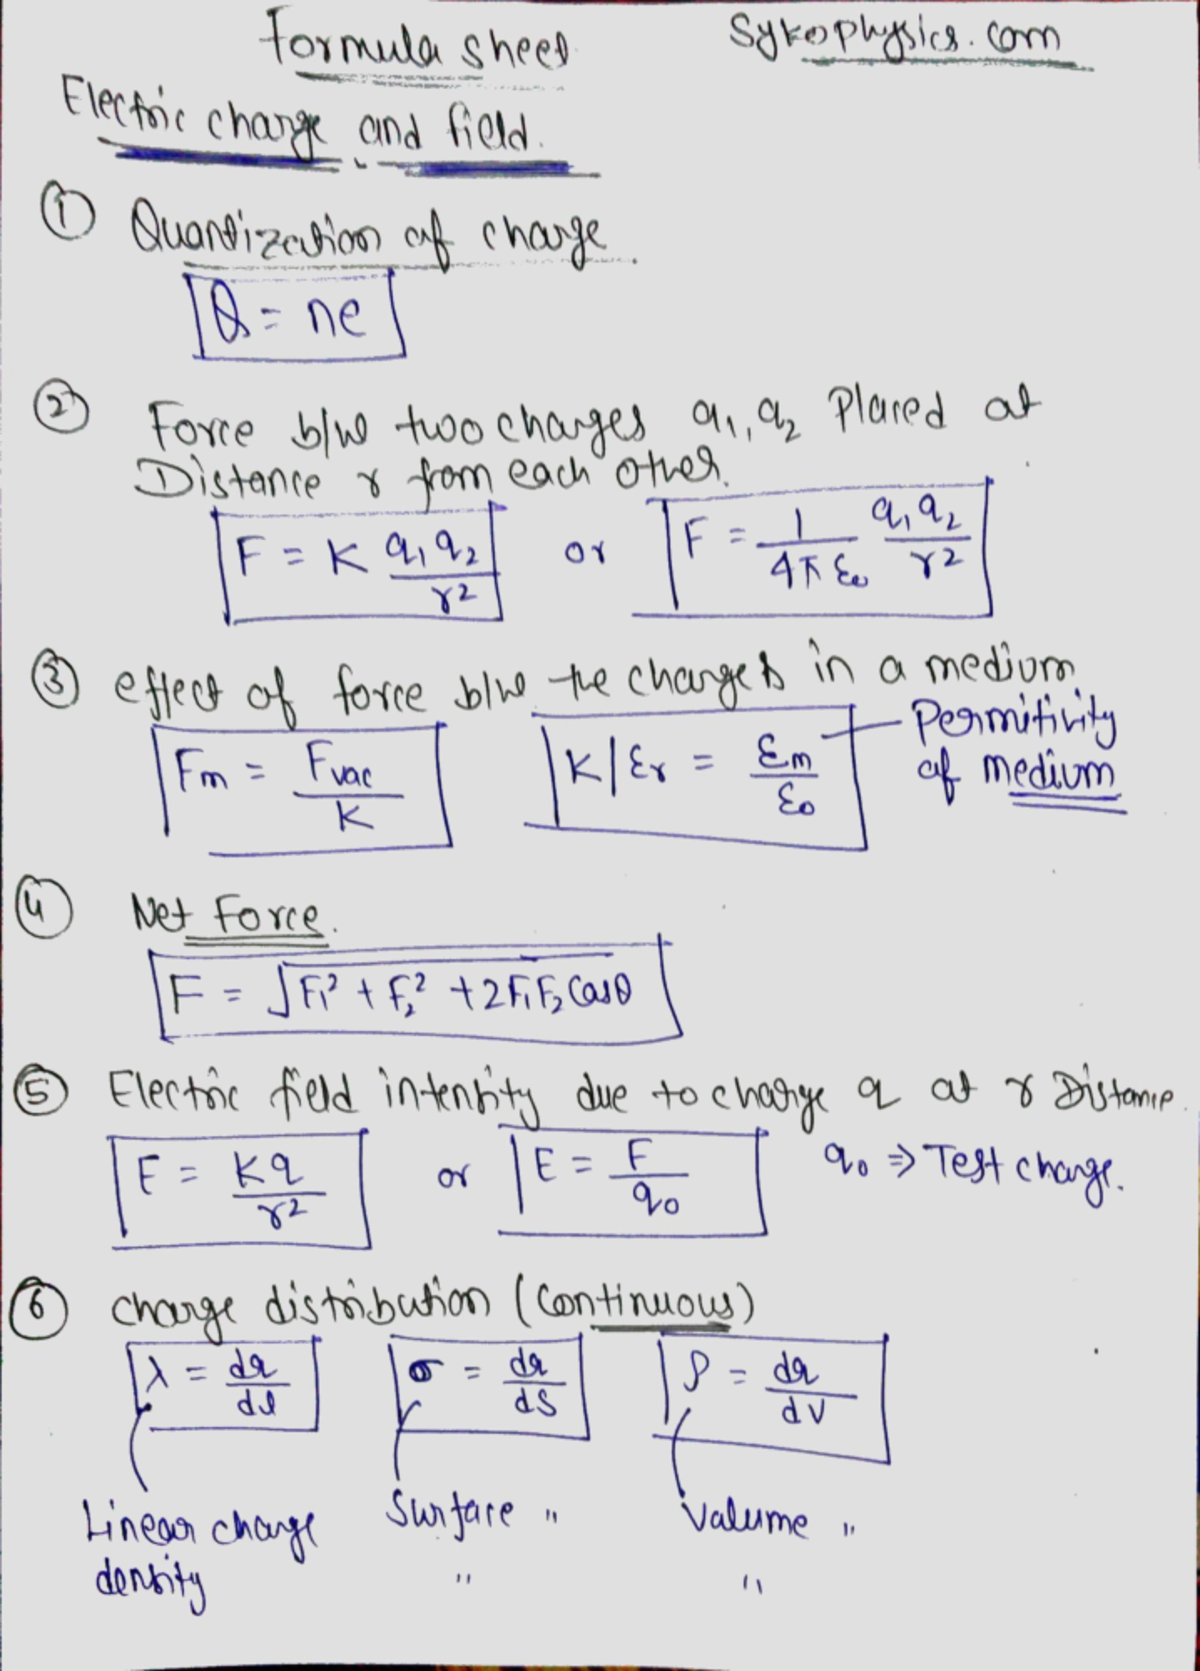 Formula sheet Sykophysics.com
Electric charge and field.
① Quantization of charge.
Q = ne
② Force b/w two charges q₁, q₂ Placed at
Distance r from each other.
F = K q₁ q₂ / r² or F = 1 / 4π ε₀ q₁ q₂ / r²
③ effect of force b/w the charges in a medium
Fm = Fvac / K K / εr = εm / ε₀ Permitivity
of medium
④ Net Force.
F = √F₁² + F₂² + 2F₁F₂ Cosθ
⑤ Electric field intensity due to charge q at r Distance.
E = Kq / r² or E = F / q₀ q₀ ⇒ Test charge.
⑥ charge distribution (Continuous)
λ = dq / dl σ = dq / dS ρ = dq / dV
Linear charge Surface " Valume "
density " "